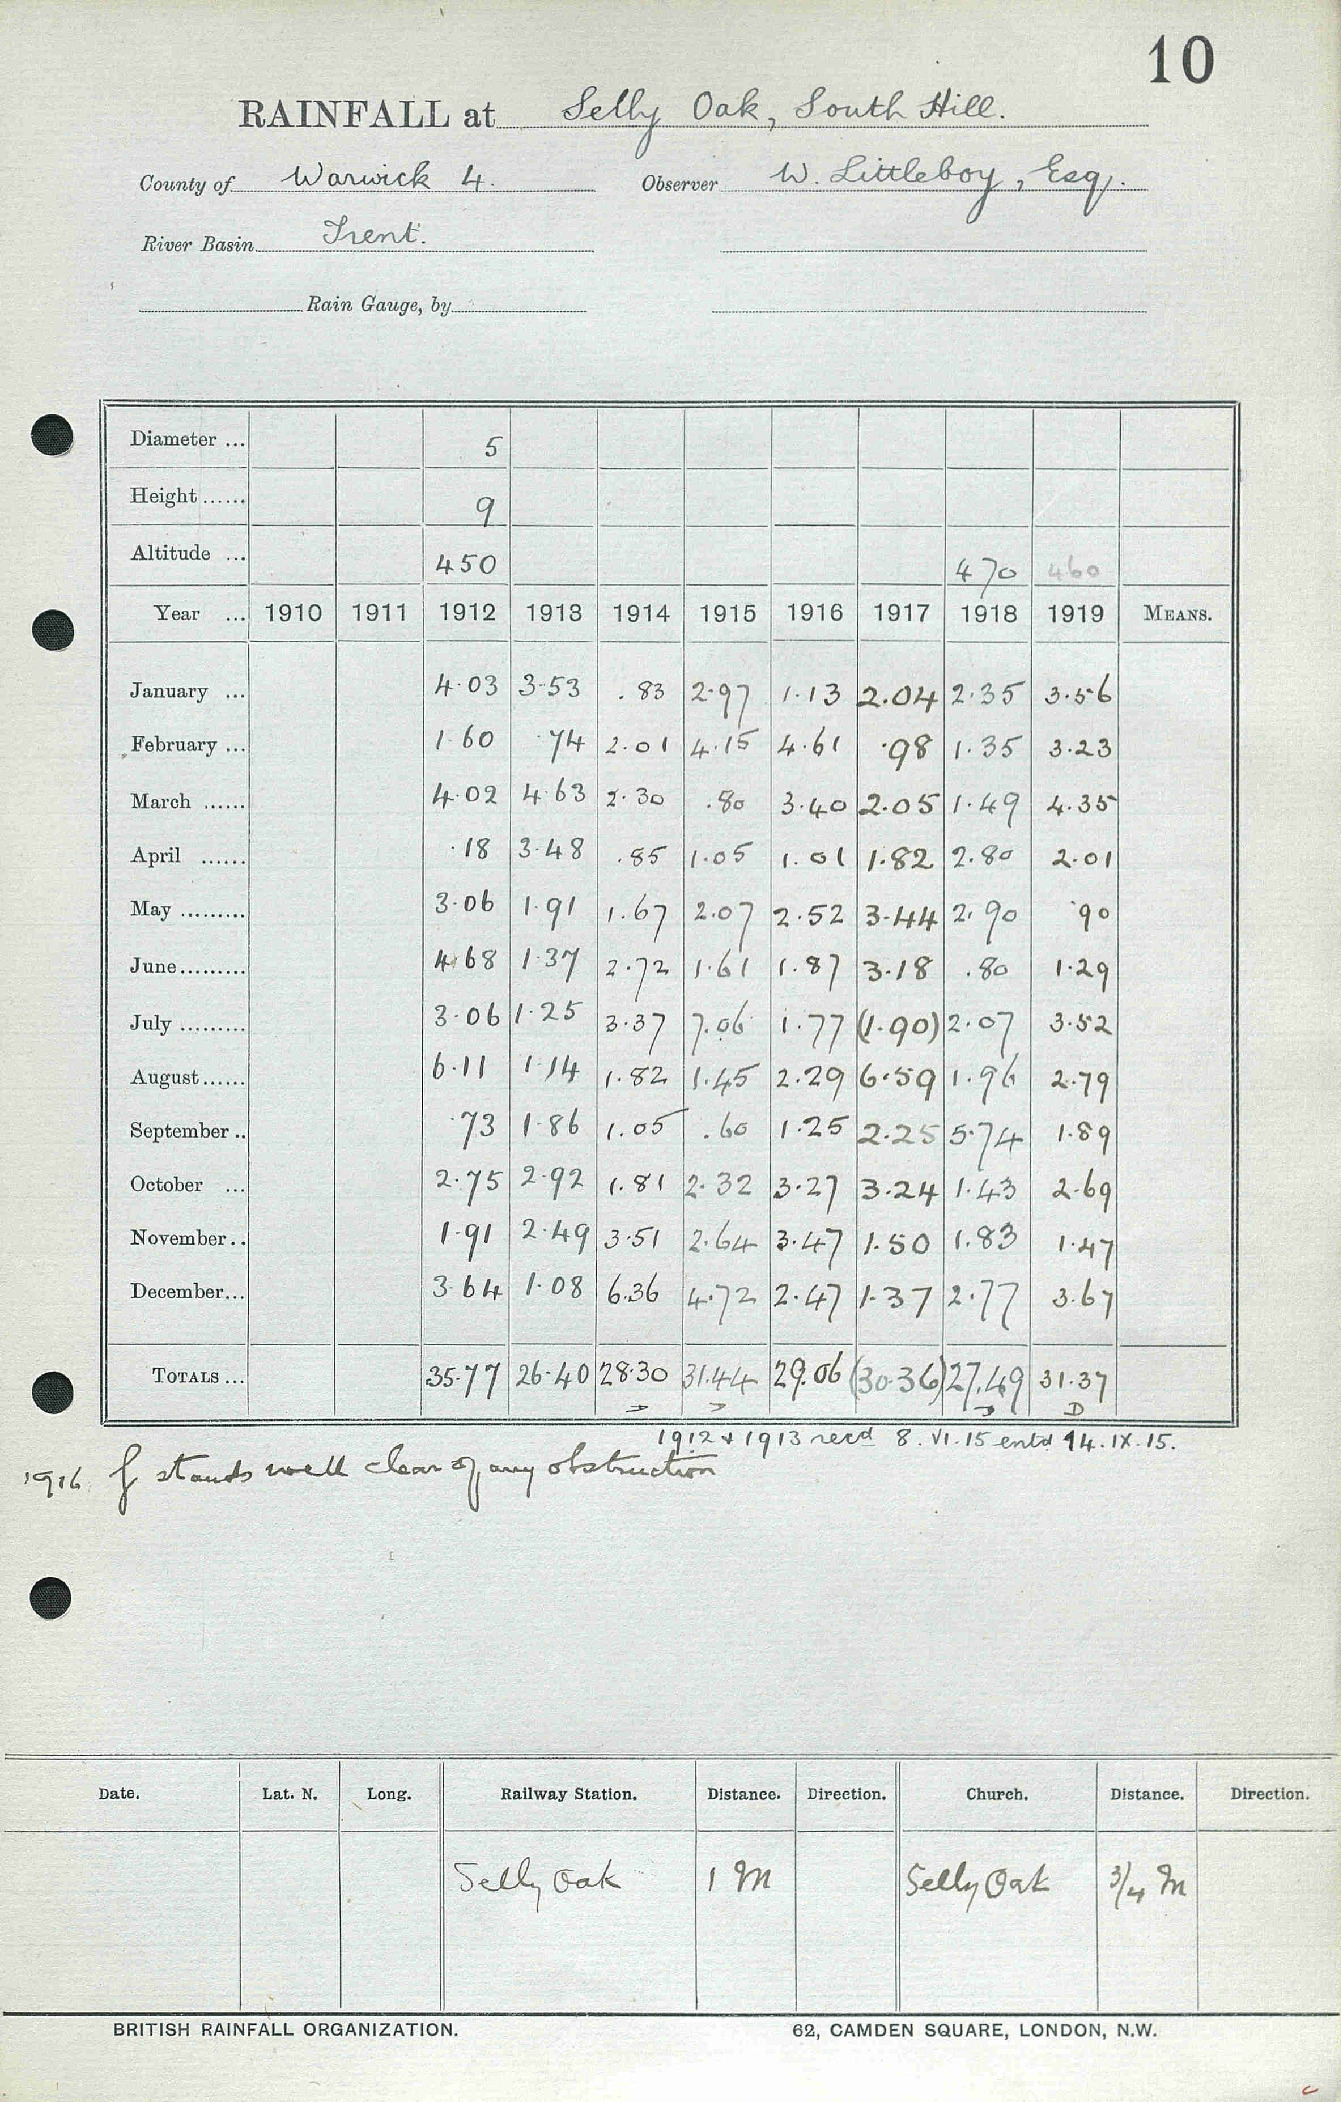 10
RAINFALL at Selly Oak, South Hill.
County of Warwick 4. Observer W. Littleboy, Esq.
River Basin Trent.
Rain Gauge, by
Diameter ... 5
Height...... 9
Altitude ... 450 470 460
Year ... 1910 1911 1912 1913 1914 1915 1916 1917 1918 1919 MEANS.
January ... 4.03 3.53 .83 2.97 1.13 2.04 2.35 3.56
February ... 1.60 .74 2.01 4.15 4.61 .98 1.35 3.23
March ...... 4.02 4.63 2.30 .80 3.40 2.05 1.49 4.35
April ...... .18 3.48 .85 1.05 1.01 1.82 2.80 2.01
May ......... 3.06 1.91 1.67 2.07 2.52 3.44 2.90 .90
June......... 4.68 1.37 2.72 1.61 1.87 3.18 .80 1.29
July ......... 3.06 1.25 3.37 7.06 1.77 (1.90) 2.07 3.52
August...... 6.11 1.14 1.82 1.45 2.29 6.59 1.96 2.79
September .. .73 1.86 1.05 .60 1.25 2.25 5.74 1.89
October ... 2.75 2.92 1.81 2.32 3.27 3.24 1.43 2.69
November.. 1.91 2.49 3.51 2.64 3.47 1.50 1.83 1.47
December... 3.64 1.08 6.36 4.72 2.47 1.37 2.77 3.67
TOTALS ... 35.77 26.40 28.30 31.44 29.06 (30.36) 27.49 31.37
D
1912 & 1913 recd 8.VI.15 entd 14.IX.15.
1916 stands well clear of any obstruction
Date. Lat. N. Long. Railway Station. Distance. Direction. Church. Distance. Direction.
Selly Oak 1 M Selly Oak 3/4 M
BRITISH RAINFALL ORGANIZATION. 62, CAMDEN SQUARE, LONDON, N.W.